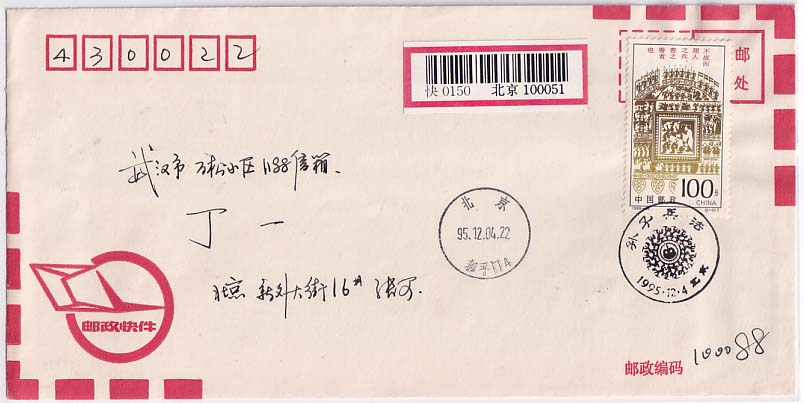 430022
快 0150 北京 100051
邮
处
不战而
屈人
之兵
善之
善者
也
100分
中国邮政 CHINA
武汉市 万松小区 1188信箱.
丁一
北京
95.12.04.22
和平门4
孙子兵法
1995·12·4 北京
北京 新外大街16#
邮政快件
邮政编码 100088